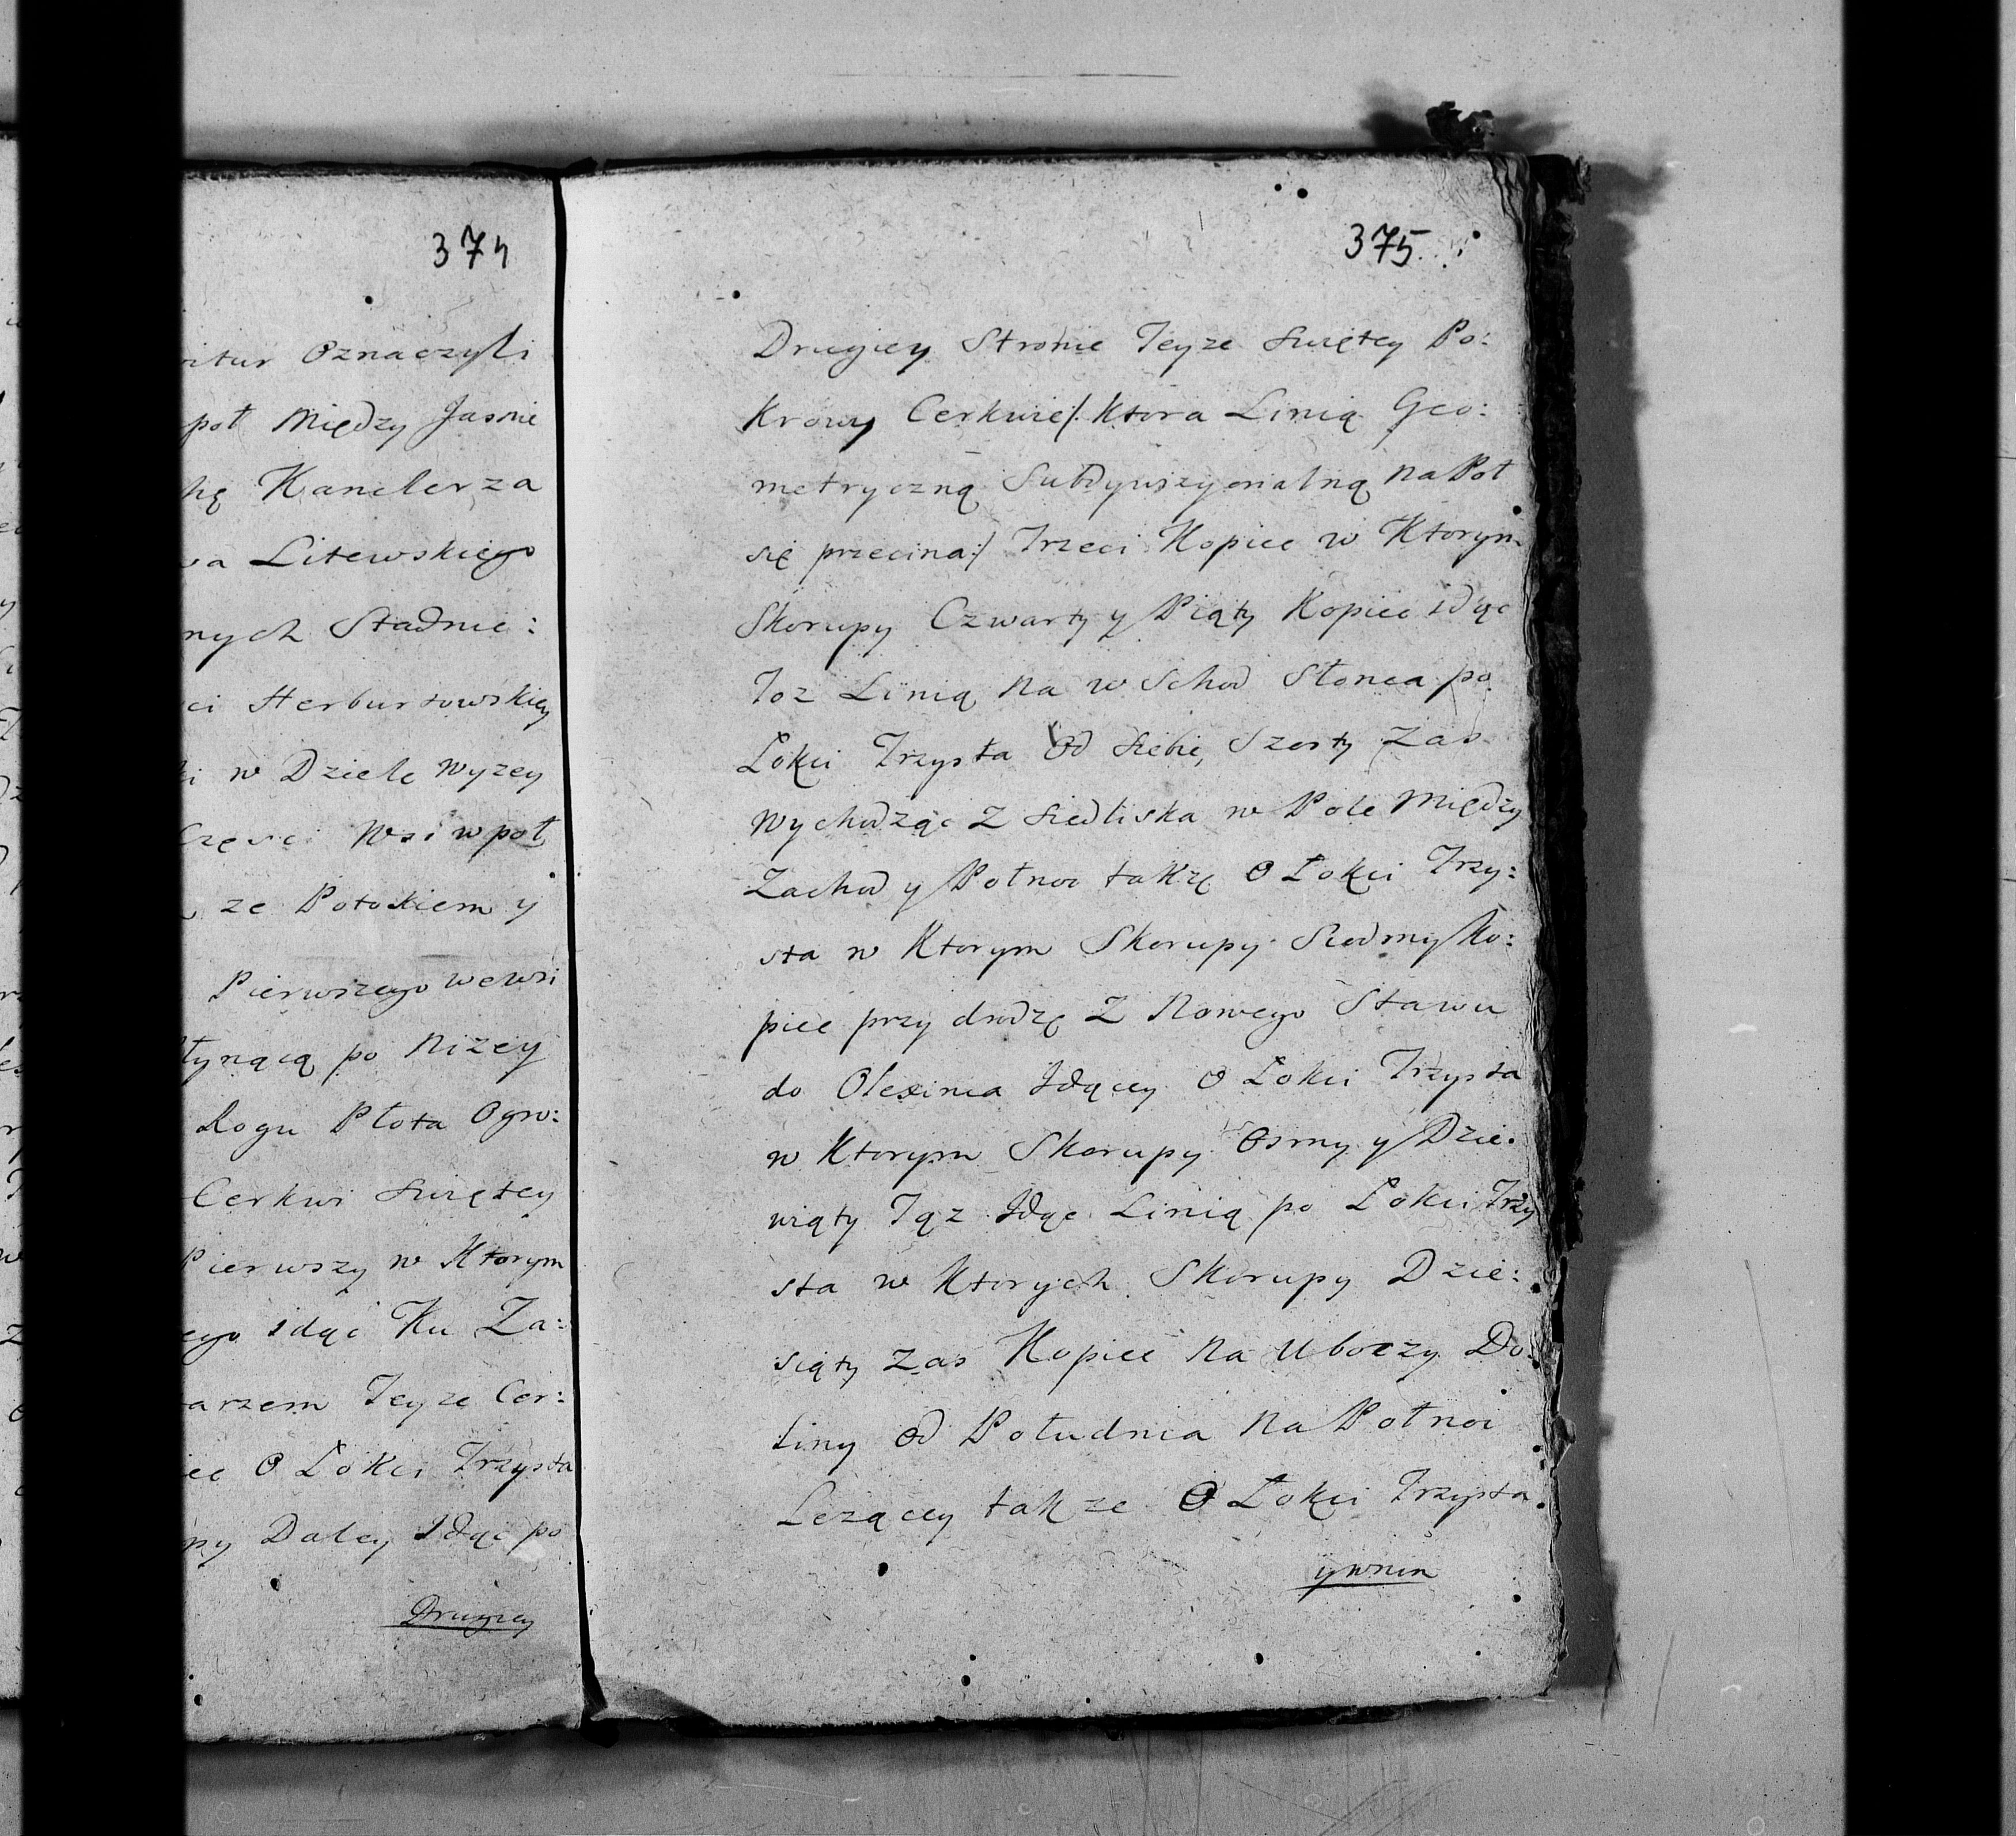 374
Oznaczyli
poł Między Jasnie
hę Kanclerza
wa Litewskiego
nych Stadnic:
ci Herburtowskiey
ki w Dziele wyzey
Częsci Wsi wpoł
ze Potokiem y
Pierwszego wewsi
łynącą po Nizey
Rogu Płota Ogro:
Cerkwi Swiętey
Pierwszy w Ktorym
ego idąc Ku Za:
arzem Teyze Cer:
iec O Łokci Trzysta
py Daley Idąc po
Drugiey
375
Drugiey Stronie Teyze Swiętey Po:
Krowy Cerkwie/: Ktora Linią Geo:
metryczną Subdywizyonalną na Poł
się przecina:/ Trzeci Kopiec w Ktorym
Skorupy Czwarty y Piąty Kopiec idąc
Toz Linią na w Schod Słonca po
Łokci Trzysta Od Siebie, Szosty Zas
Wychodząc Z Siedliska w Pole Między
Zachod y Połnoc takzę O Łokci Trzy:
sta w Ktorym Skorupy Siedmy Ko:
piec przy drodzę Z Nowego Stawu
do Olexinca Idącey O Łokci Trzysta
w Ktorym Skorupy Osmy y Dzie:
wiąty Tąz Idąc Linią po Łokci Trzy
sta w Ktorych Skorupy Dzie:
siąty Zas Kopiec na Uboczy Do:
liny Od Południa Na Połnoc
Lezącey takze O Łokci Trzysta
y wnim